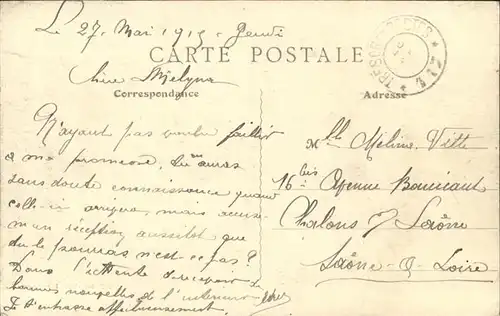 Le 27 Mai 1915 Jeudi
CARTE POSTALE
Chère
Correspondance
Adresse
TRESOR ET POSTES
N'ayant pas voulu faillir
à ma promesse, tu auras
sans doute connaissance quand
celle-ci arrivera, mais accuse-
m'en réception aussitôt que
tu le pourras n'est-ce pas?
Dans l'attente de recevoir de
bonnes nouvelles de
Je t'embrasse affectueusement.
Mlle Méline Vitte
16 bis Avenue Boucicaut
Chalons s/ Saône
Saône-&-Loire